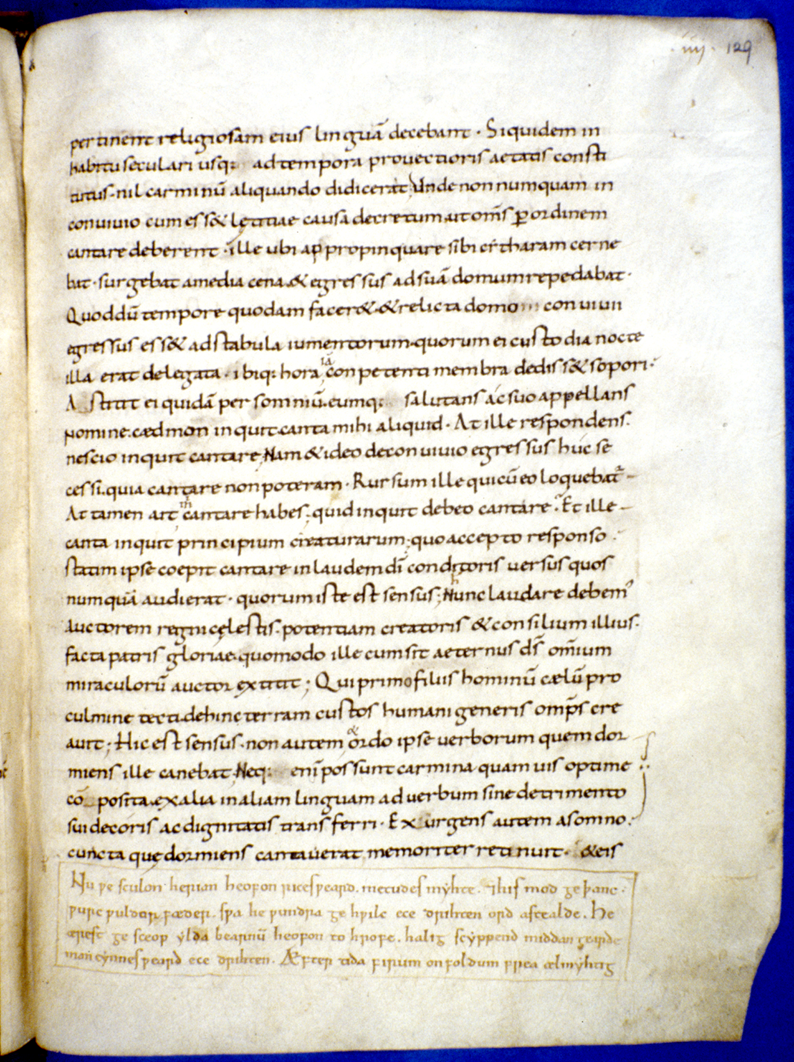 .iiij. 129
pertinent religiosam eius linguā decebant · Siquidem in
habitu seculari usq; ad tempora provectioris aetatis consti
tutus· nil carminū aliquando didicerat; Unde non numquam in
convivio cum ess& lętitiae causa decretum aut om̄s ꝑ ordinem
cantare deberent · ille ubi appropinquare sibi citharam cerne
bat · surgebat a media cena & egressus ad suā domum repedabat ·
Quod dū tempore quodam facer& & relicta domo convivii
egressus ess& ad stabula iumentorum quorum ei custodia nocte
illa erat delegata · ibiq; hora conpetenti membra dediss& sopori ·
A stitit ei quidā per somniū· eumq; salutans ac suo appellans
nomine· cædmon inquit· canta mihi aliquid · At ille respondens·
nescio inquit cantare; Nam & ideo de convivio egressus huc se
cessi· quia cantare non poteram · Rursum ille qui cū eo loquebat̄
At tamen ait cantare habes; quid inquit debeo cantare · Et ille
canta inquit principium creaturarum; quo accepto responso
statim ipse coepit cantare in laudem dī conditoris versus quos
numquā audierat · quorum iste est sensus; Nunc laudare debem'
auctorem regni cęlestis· potentiam creatoris & consilium illius·
facta patris gloriae· quomodo ille cum sit aeternus dš omnium
miraculorū auctor extitit ; Qui primo filiis hominū cælū pro
culmine tecti· dehinc terram custos humani generis omp̄s cre
avit ; Hic est sensus· non autem ordo ipse verborum quem dor
miens ille canebat; Neq; eni possunt carmina quamvis optime
cō posita· ex alia in aliam linguam ad verbum sine detrimento
sui decoris ac dignitatis transferri · Exurgens autem a somno·
cuncta quę dormiens cantaverat memoriter retinuit · & eis
Nu ƿe sculon herian heofon rices ƿeard. metudes myhte. ⁊ his mod ge þanc.
ƿurc ƿuldor fæder. sƿa he ƿundra ge hƿilc ece drihten ord astealde. He
ærest ge sceop ylda bearnū heofon to hrofe. halig scyppend middan gearde
man cynnes ƿeard ece drihten. Æfter tida firum on foldum frea ælmyhtig